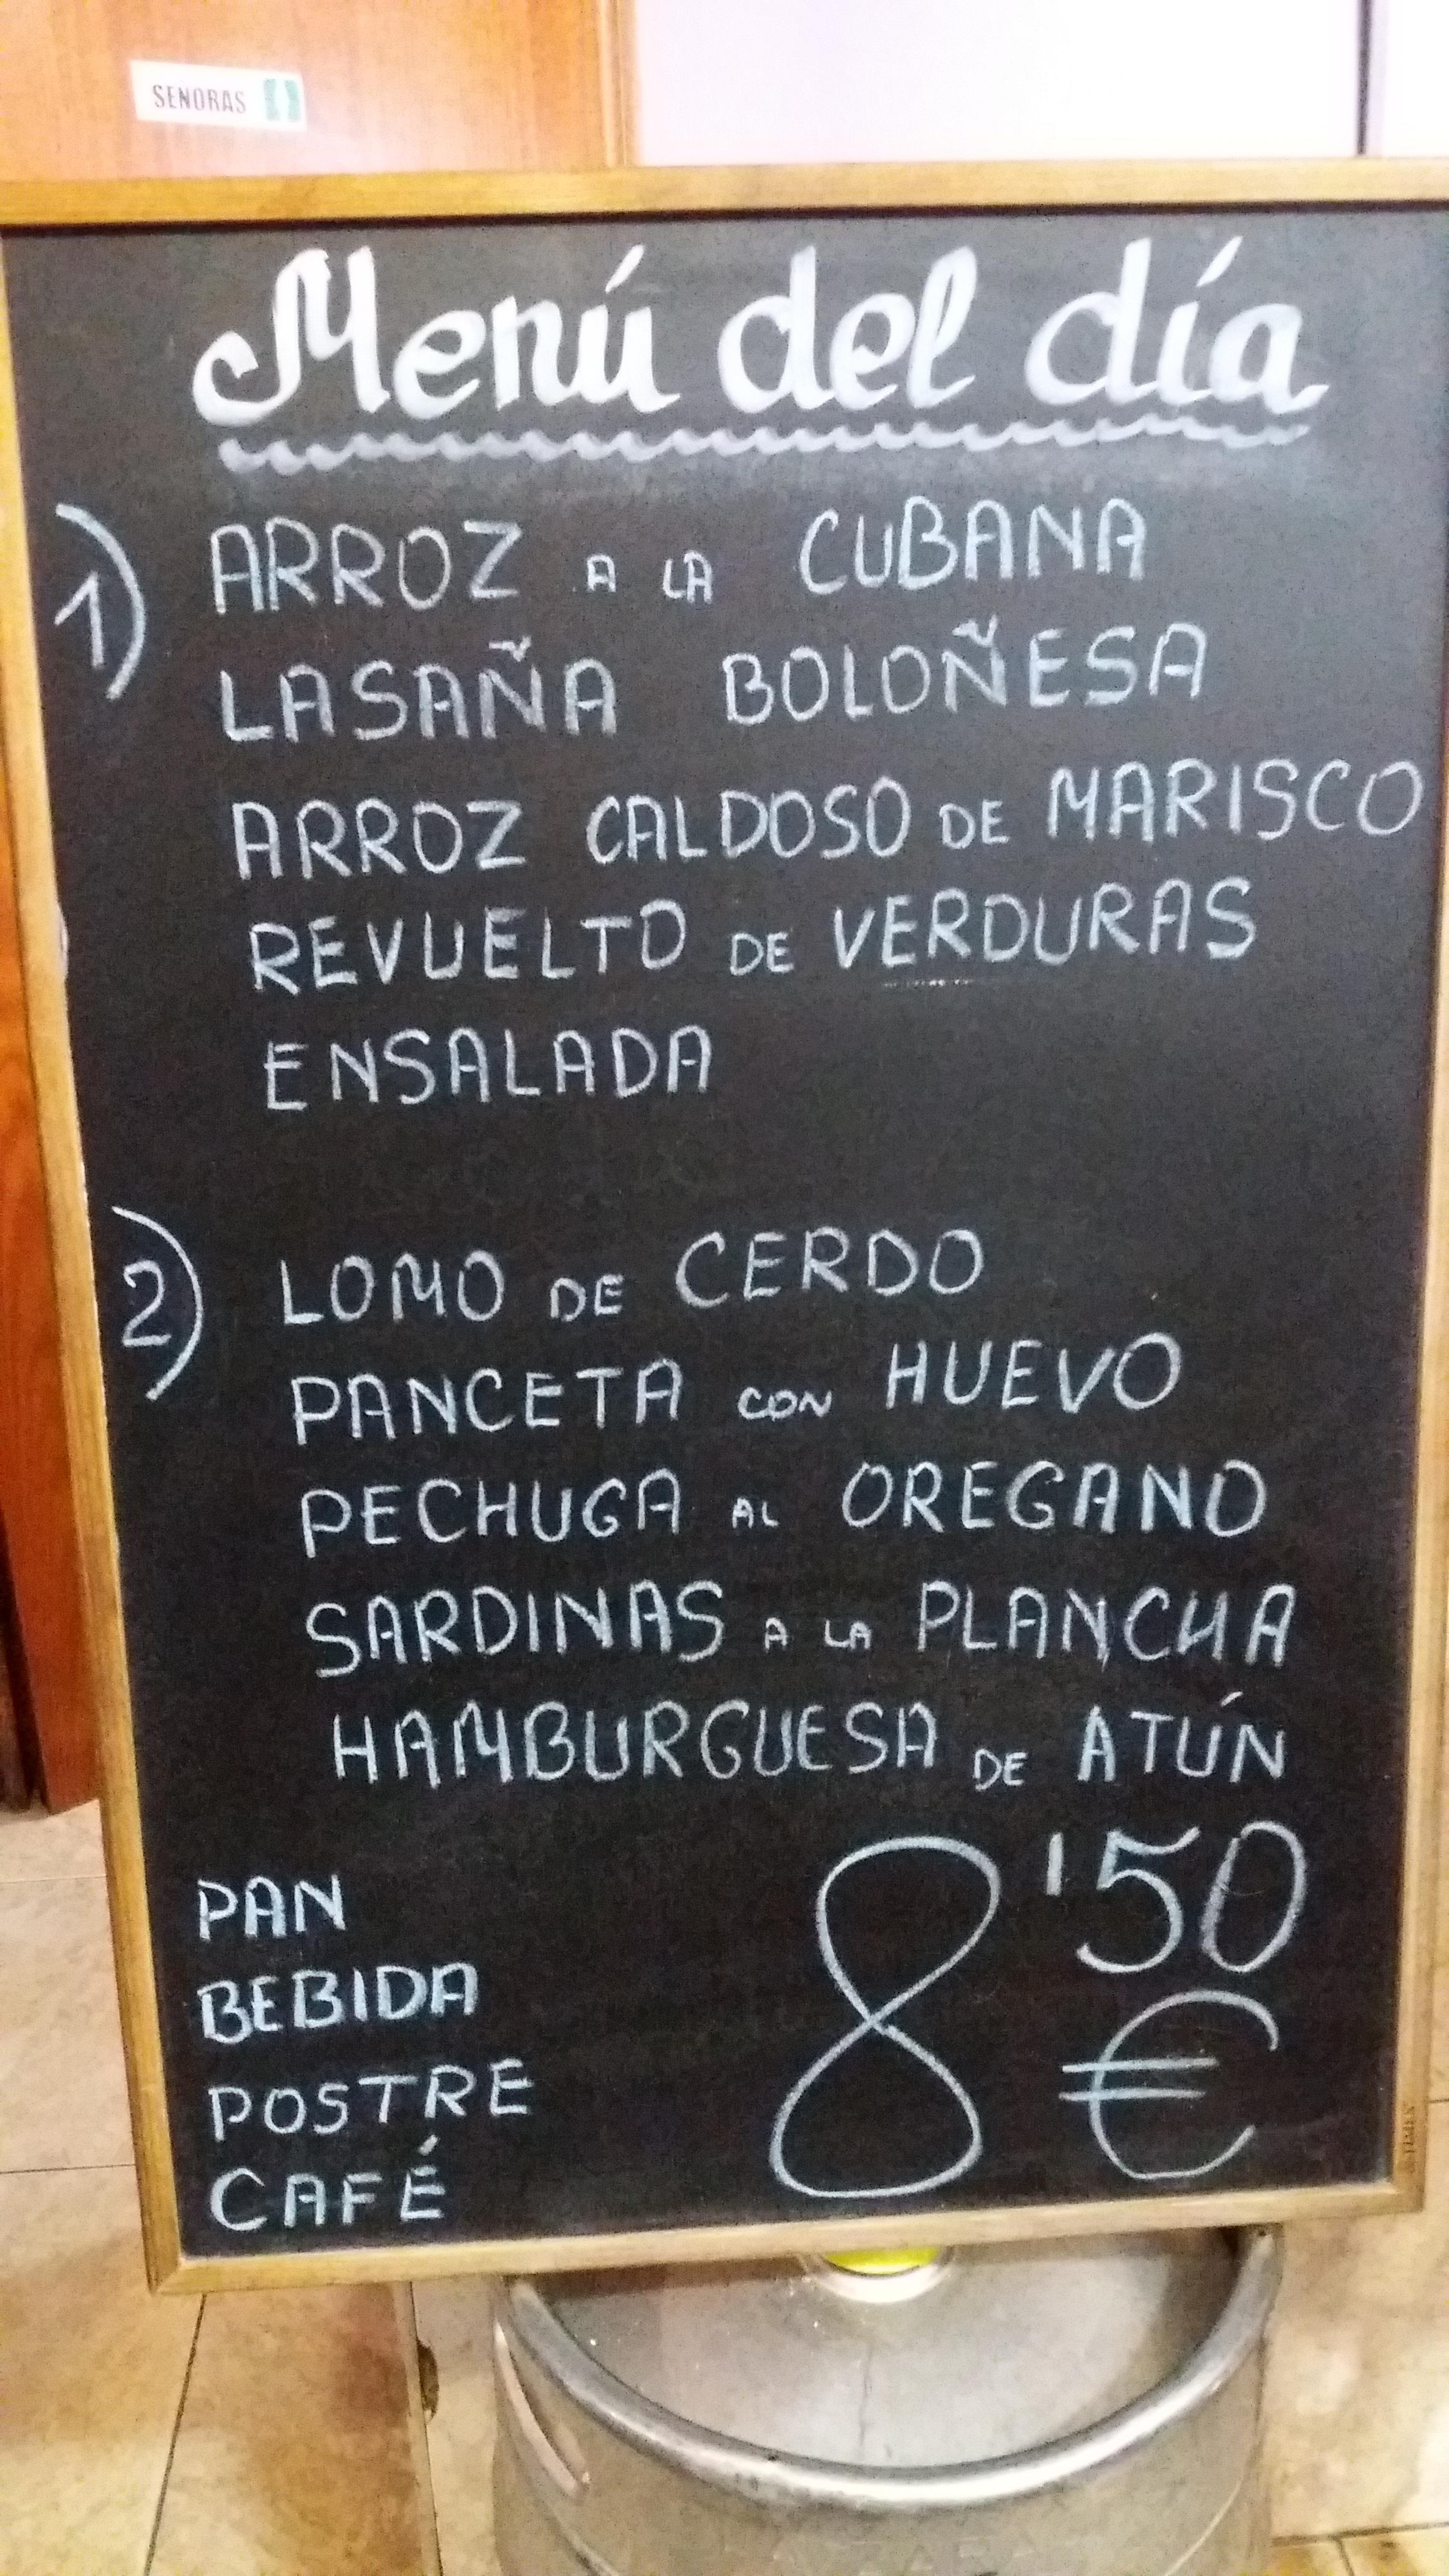 SEÑORAS
Menú del día
1) ARROZ A LA CUBANA
LASAÑA BOLOÑESA
ARROZ CALDOSO DE MARISCO
REVUELTO DE VERDURAS
ENSALADA
2) LOMO DE CERDO
PANCETA CON HUEVO
PECHUGA AL OREGANO
SARDINAS A LA PLANCHA
HAMBURGUESA DE ATÚN
PAN
BEBIDA
POSTRE
CAFÉ
8'50
€